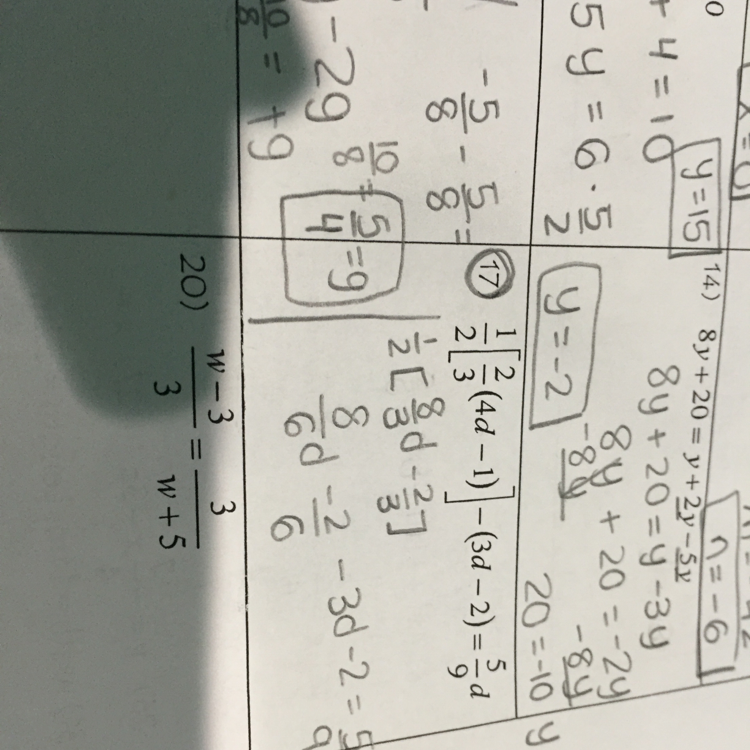 + 4 = 10
y = 15
5y = 6 · 5/2
-5/8 - 5/8 =
- 2g
10/8 = 5/4 = g
10/8 = +g
n = -6
14) 8y + 20 = y + 2y - 5y
8y + 20 = y - 3y
8y + 20 = -2y
-8y -8y
20 = -10y
y = -2
17 1/2[2/3(4d - 1)] - (3d - 2) = 5/9 d
1/2[8/3 d - 2/3]
8/6 d - 2/6 - 3d - 2 = 5/9
20) (w - 3)/3 = 3/(w + 5)